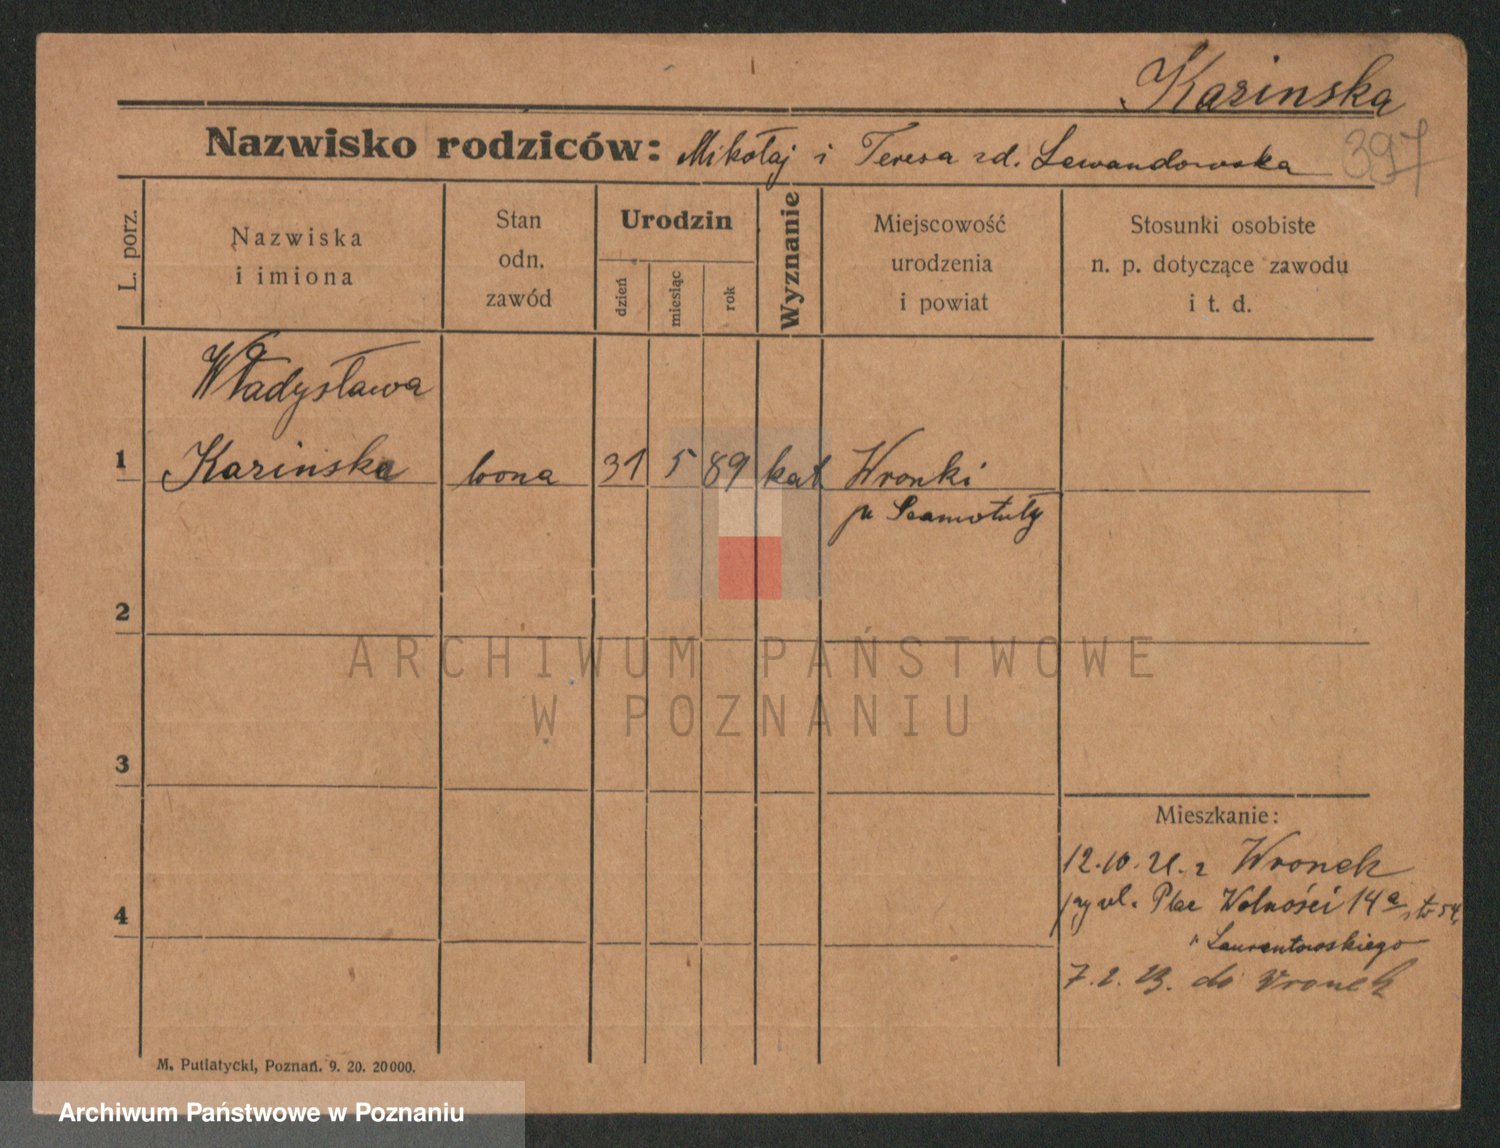 Karinska
397
Nazwisko rodziców: Mikołaj i Teresa zd. Lewandowska
L. porz.
Nazwiska
i imiona
Stan
odn.
zawód
Urodzin
dzień
miesiąc
rok
Wyznanie
Miejscowość
urodzenia
i powiat
Stosunki osobiste
n. p. dotyczące zawodu
i t. d.
Władysława
1 Karinska bona 31 5 89 kat Wronki
p Szamotuły
2
ARCHIWUM PAŃSTWOWE
W POZNANIU
3
Mieszkanie:
12.10.21. z Wronek
Plac Wolności 14a
4
Laurentowskiego
7.2. do Wronek
M. Putiatycki, Poznań. 9. 20. 20000.
Archiwum Państwowe w Poznaniu